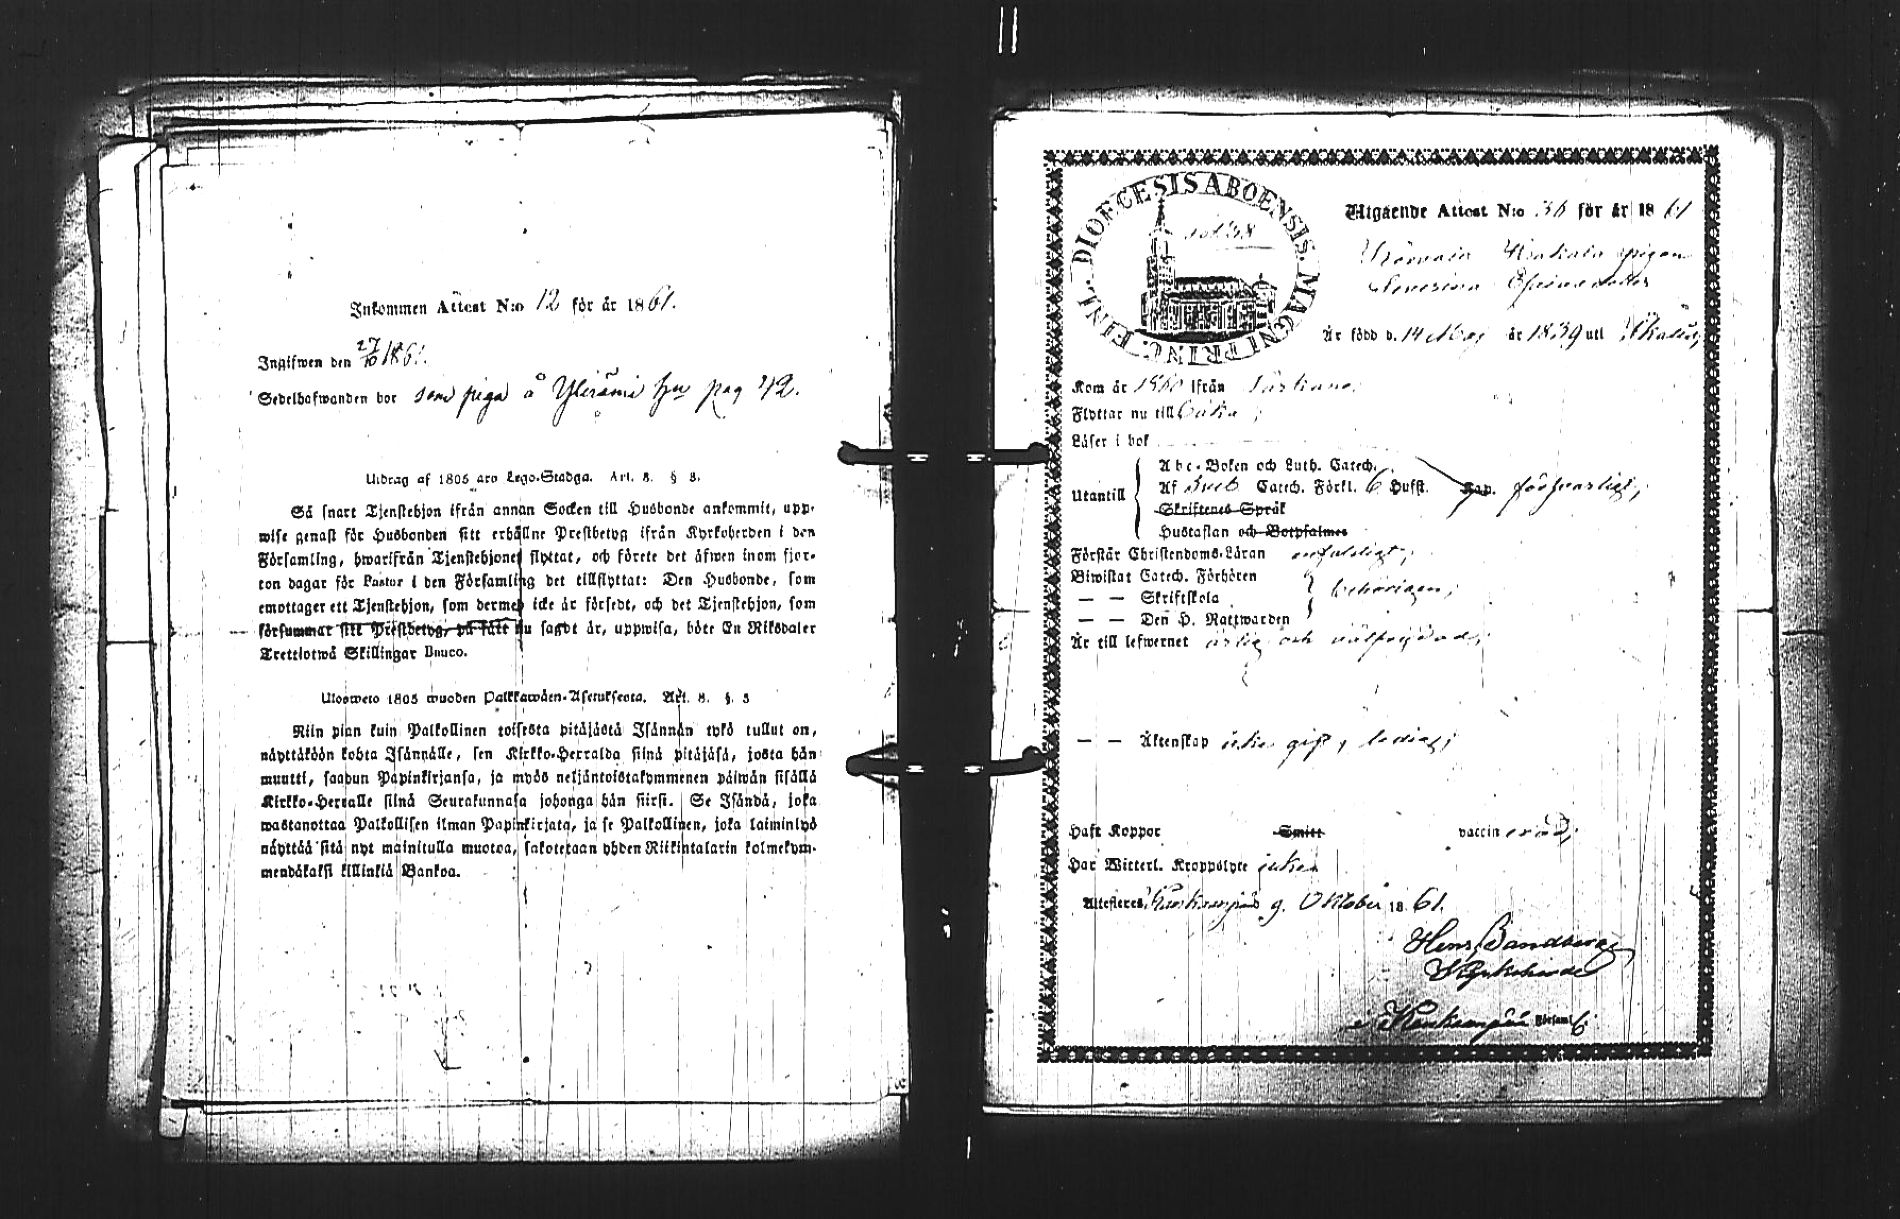 Inkommen Attest N:o 12 för år 1861.
Ingifwen den 27/10 1861.
Sedelhafwanden bor som piga å Ylirämi hn pag 42.
Utdrag af 1805 års Lego-Stadga. Art. 8. § 3.
Så snart Tjenstehjon ifrån annan Socken till Husbonde ankommit, upp-
wise genast för Husbonden sitt erhållne Prestbetyg ifrån Kyrkoherden i den
Församling, hwarifrån Tjenstehjonet flyttat, och förete det äfwen inom fjor-
ton dagar för Pastor i den Församling det tillflyttat: Den Husbonde, som
emottager ett Tjenstehjon, som dermed icke är försedt, och det Tjenstehjon, som
försummar sitt Prestbetyg, på sätt nu sagdt är, uppwisa, böte En Riksdaler
Trettiotwå Skillingar Banco.
Ulosweto 1805 wuoden Palkkawäen-Asetuksesta. Art. 8. §. 3
Niin pian kuin Palkollinen toisesta pitäjästä Isännän tykö tullut on,
näyttäköön kohta Isännälle, sen Kirkko-Herralda siinä pitäjäsä, josta hän
muutti, saadun Papinkirjansa, ja myös neljäntoistakymmenen päiwän sisällä
Kirkko-Herralle siinä Seurakunnasa johonga hän siirsi. Se Isändä, joka
wastanottaa Palkollisen ilman Papinkirjata, ja se Palkollinen, joka laiminlyö
näyttää sitä nyt mainitulla muotoa, sakotetaan yhden Riikintalarin kolmekym-
mendäkaksi killinkiä Bankoa.
DIOECESIS ABOENSIS. MAGNI PRINC. FINL.
Utgående Attest N:o 36 för år 1861
pigan
Severina
Är född d. 14 Maj år 1839 uti
Kom år 1860 ifrån
Flyttar nu till
Läser i bok
Utantill
Abc-Boken och Luth. Catech.
Af Catech. Förkl. 6 Hufst. Kap. försvarligt;
Skriftenes Språk
Hustaflan och Botpsalmer
Förstår Christendoms-Läran enfaldigt;
Biwistat Catech. Förhören
— — Skriftskola behörigen;
— — Den H. Nattwarden
Är till lefwernet ärlig och välfrejdad;
— — Äktenskap icke gift, ledig;
Haft Koppor Smitt vaccin
Har Witterl. Kroppslyte icke.
Attesteras, Kankaanpää 9. Oktober 1861.
Kyrkoherde
i Kankaanpää Församl.